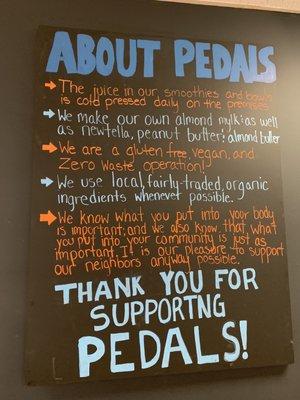 ABOUT PEDALS
The juice in our smoothies and bowls
is cold pressed daily on the premises
We make our own almond mylk as well
as newtella, peanut butter & almond butter
We are a gluten free, vegan, and
Zero Waste, operation!
We use local, fairly-traded, organic
ingredients whenever possible.
We know what you put into your body
is important; and we also know, that, what
you put into your community is just as
important. It is our pleasure to support
our neighbors anyway possible.
THANK YOU FOR
SUPPORTNG
PEDALS!